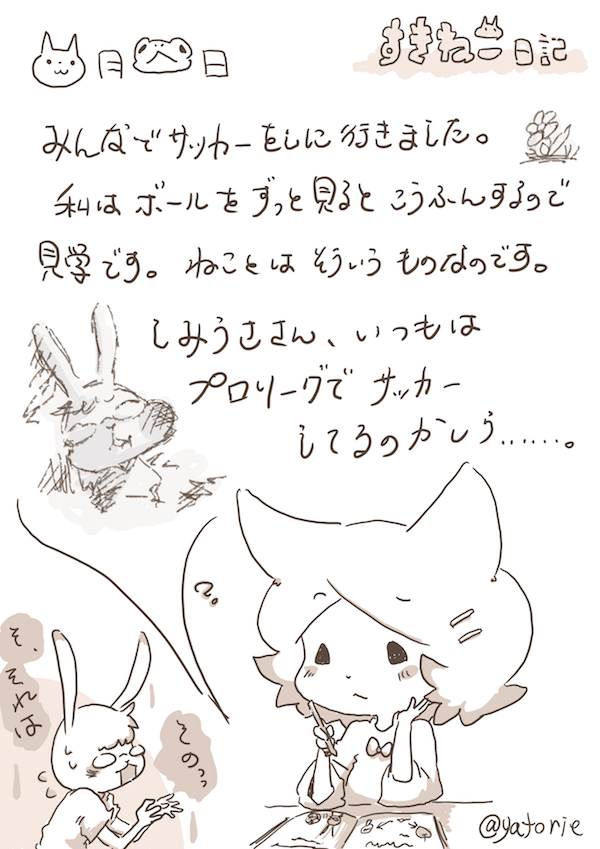 月 日
すきねこ日記
みんなでサッカーをしに行きました。
私はボールをずっと見るとこうふんするので
見学です。ねことはそういうものなのです。
しみうささん、いつもは
プロリーグでサッカー
してるのかしら……。
?
そ、
それは
そのっっ
@yatorie